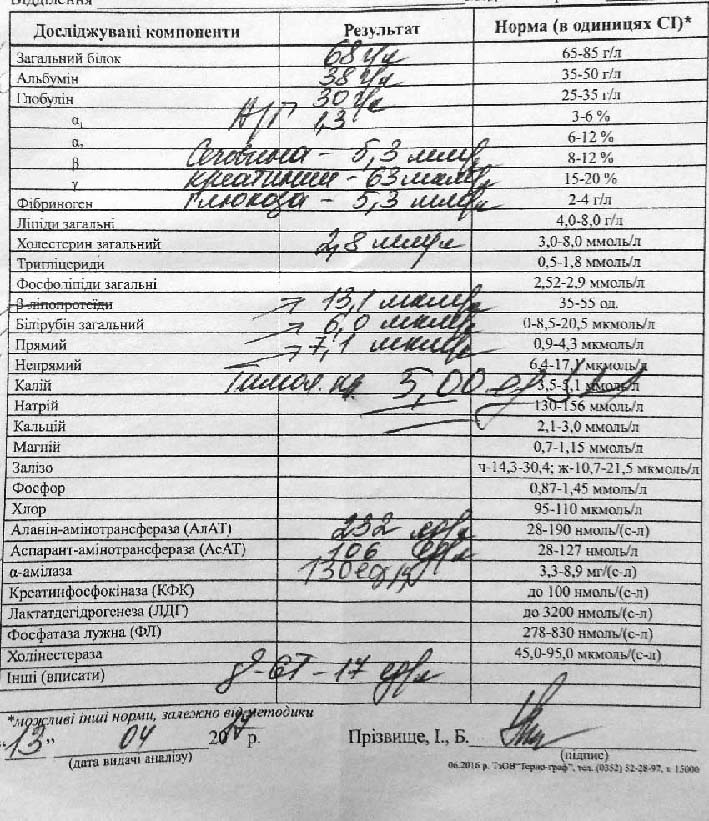 Досліджувані компоненти Результат Норма (в одиницях СІ)*
Загальний білок 68 г/л 65-85 г/л
Альбумін 38 г/л 35-50 г/л
Глобулін 30 г/л 25-35 г/л
α₁ А/Г 1,3 3-6 %
α₂ 6-12 %
β Сечовина - 5,3 ммол/л 8-12 %
γ креатинин - 63 мкмол/л 15-20 %
Фібриноген глюкоза - 5,3 ммол/л 2-4 г/л
Ліпіди загальні 4,0-8,0 г/л
Холестерин загальний 2,8 ммол/л 3,0-8,0 ммоль/л
Тригліцериди 0,5-1,8 ммоль/л
Фосфоліпіди загальні 2,52-2,9 ммоль/л
β-ліпопротеїди 13,1 мкмол/л 35-55 од.
Білірубін загальний 6,0 мкмол/л 0-8,5-20,5 мкмоль/л
Прямий 7,1 мкмол/л 0,9-4,3 мкмоль/л
Непрямий 6,4-17,1 мкмоль/л
Калій Тимол. пр. 5,00 3,5-5,1 ммоль/л
Натрій 130-156 ммоль/л
Кальцій 2,1-3,0 ммоль/л
Магній 0,7-1,15 ммоль/л
Залізо ч-14,3-30,4; ж-10,7-21,5 мкмоль/л
Фосфор 0,87-1,45 ммоль/л
Хлор 95-110 ммоль/л
Аланін-амінотрансфераза (АлАТ) 232 ед/л 28-190 нмоль/(с-л)
Аспарант-амінотрансфераза (АсАТ) 106 ед/л 28-127 нмоль/л
α-амілаза 130 ед/л 3,3-8,9 мг/(с-л)
Креатинфосфокіназа (КФК) до 100 нмоль/(с-л)
Лактатдегідрогенеза (ЛДГ) до 3200 нмоль/(с-л)
Фосфатаза лужна (ФЛ) 278-830 нмоль/(с-л)
Холінестераза 45,0-95,0 мкмоль/(с-л)
Інші (вписати) 17 ед/л
*можливі інші норми, залежно від методики
"13" 04 20 р. Прізвище, І., Б.
(дата видачі аналізу) (підпис)
06.2016 р. ТзОВ "Терно-граф", тел. (0352) 52-28-97, т. 15000